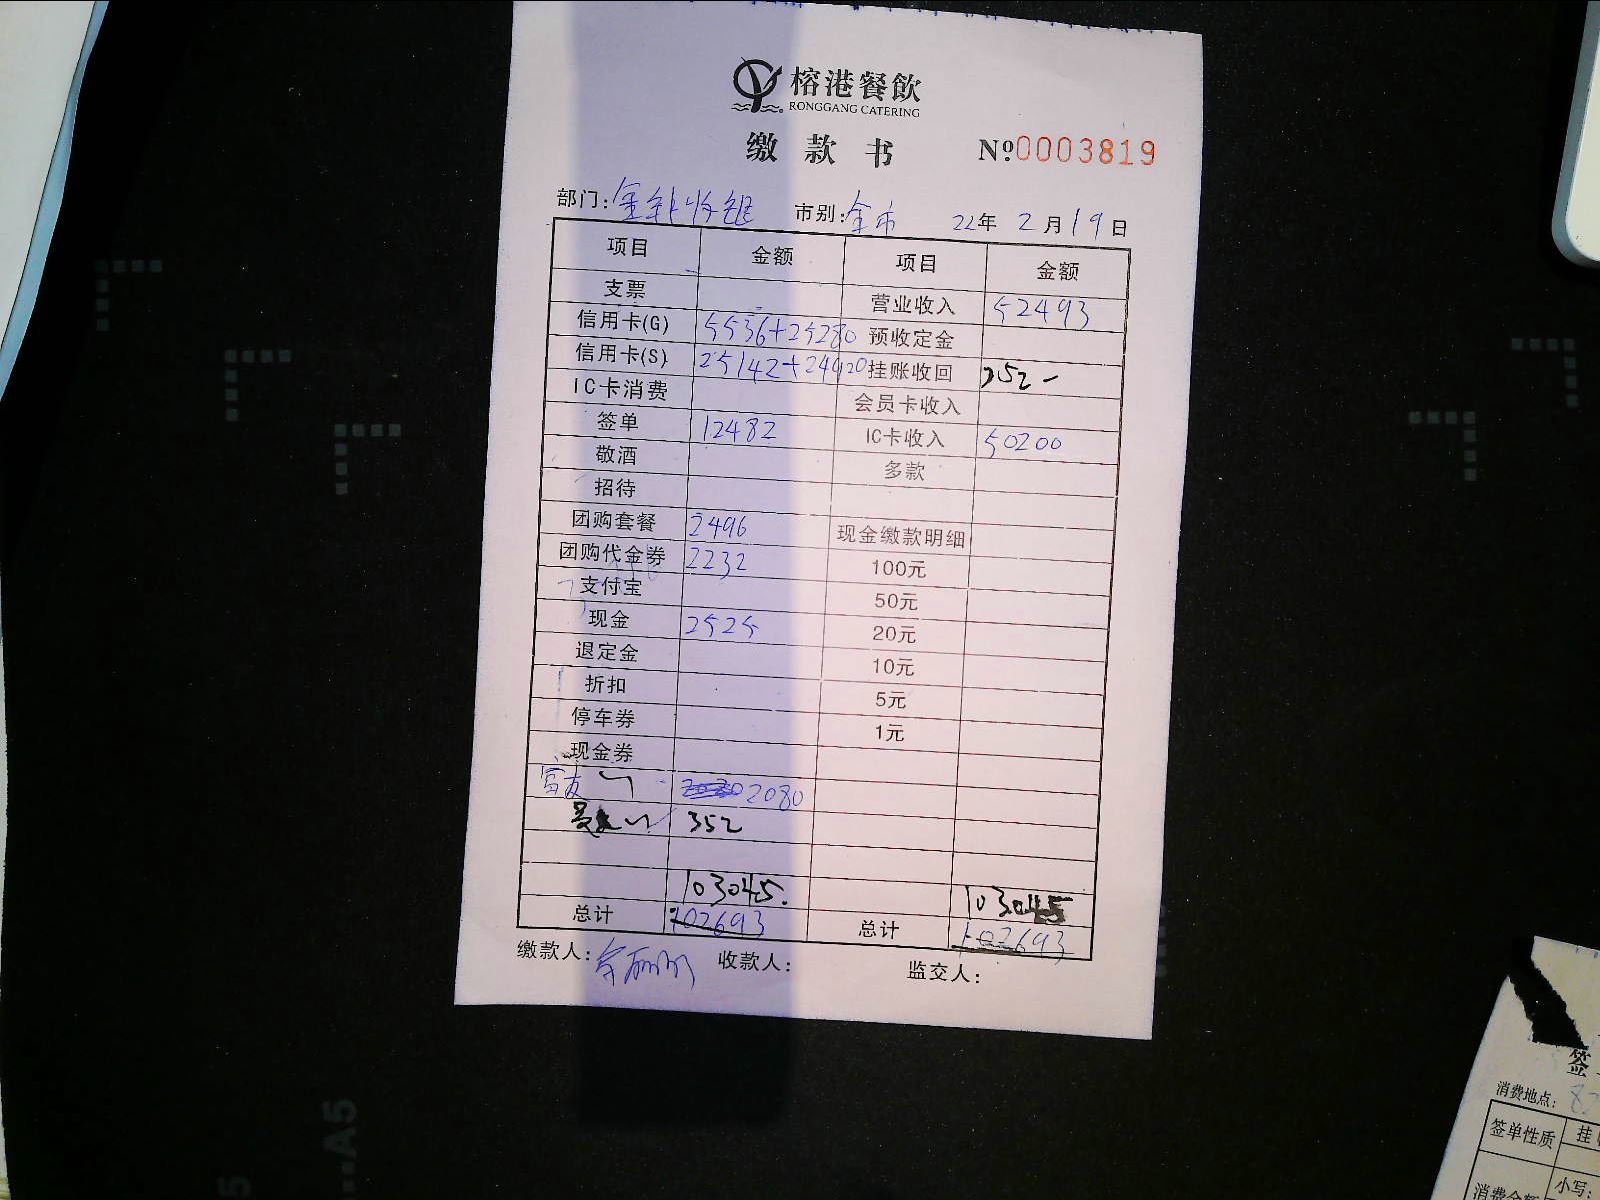 榕港餐飲
RONGGANG CATERING
缴款书 №0003819
部门: 市别:全市 22年 2月19日
项目 金额 项目 金额
支票 营业收入 52493
信用卡(G) 5536+25280 预收定金
信用卡(S) 25142+24920 挂账收回 352-
IC卡消费 会员卡收入
签单 12482 IC卡收入 50200
敬酒 多款
招待
团购套餐 2496 现金缴款明细
团购代金券 2232 100元
支付宝 50元
现金 2525 20元
退定金 10元
折扣 5元
停车券 1元
现金券
2080
352
103045. 103045
总计 102693 总计 102693
缴款人: 收款人: 监交人:
A5
签
消费地点:
签单性质 挂
小写: